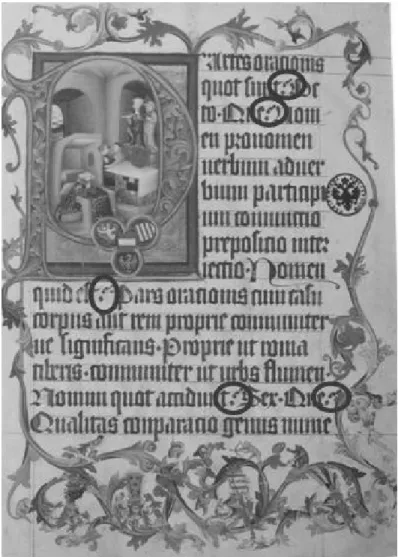 Partes orationis
quot sunt? Oc
to. Que? Nom
en pronomen
verbum adver
bium participi
um coniunctio
prepositio inter
iectio. Nomen
quid est? Pars orationis cum casu
corpus aut rem proprie communiter
ve significans. Proprie ut roma
tiberis. communiter ut urbs flumen.
Nomini quot accidunt? Sex. Que?
Qualitas conparatio genus nume